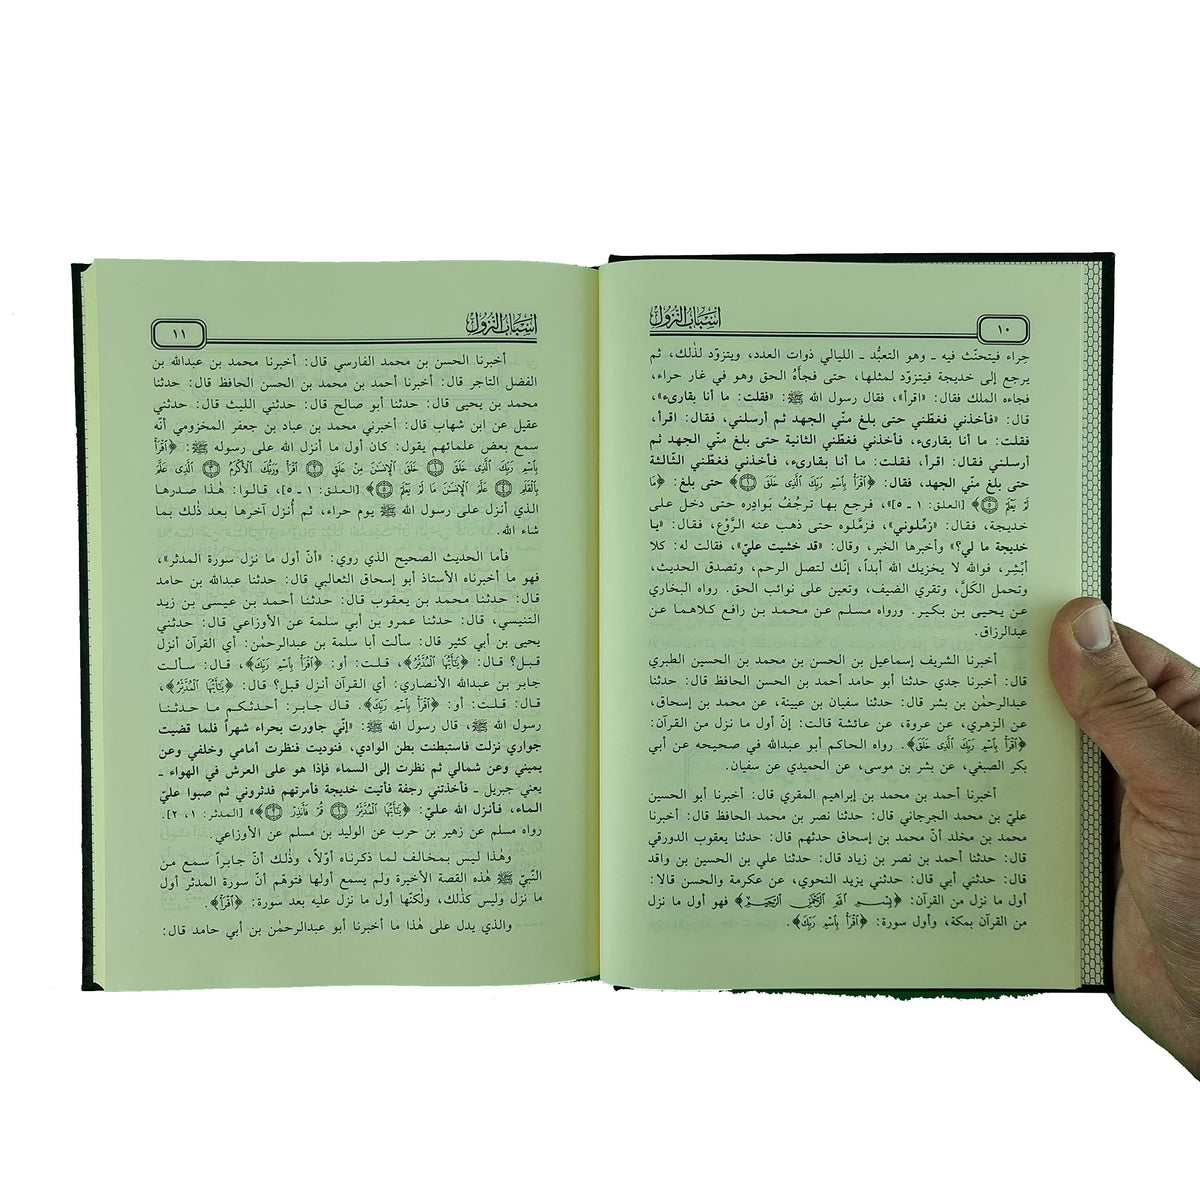 ١٠
أسباب النزول
حِراء فيتحنّث فيه ـ وهو التعبُّد ـ الليالي ذوات العدد، ويتزوّد لذلك، ثم
يرجع إلى خديجة فيتزوّد لمثلها، حتى فجأهُ الحق وهو في غار حراء،
فجاءه الملك فقال: «اقرأ»، فقال رسول الله ﷺ: «فقلت: ما أنا بقارىء»،
قال: «فأخذني فغطّني حتى بلغ منّي الجهد ثم أرسلني، فقال: اقرأ،
فقلت: ما أنا بقارىء، فأخذني فغطّني الثانية حتى بلغ منّي الجهد ثم
أرسلني فقال: اقرأ، فقلت: ما أنا بقارىء، فأخذني فغطّني الثالثة
حتى بلغ منّي الجهد، فقال: ﴿اقْرَأْ بِاسْمِ رَبِّكَ الَّذِي خَلَقَ ١﴾ حتى بلغ: ﴿مَا
لَمْ يَعْلَمْ ٥﴾ [العلق: ١ ـ ٥]»، فرجع بها ترجُفُ بَوادِره حتى دخل على
خديجة، فقال: «زمِّلوني»، فزمَّلوه حتى ذهب عنه الرَّوْع، فقال: «يا
خديجة ما لي؟» وأخبرها الخبر، وقال: «قد خشيت عليّ»، فقالت له: كلا
أبْشِر، فوالله لا يخزيك الله أبداً، إنّك لتصل الرحم، وتصدق الحديث،
وتحمل الكَلَّ، وتقري الضيف، وتعين على نوائب الحق. رواه البخاري
عن يحيى بن بكير. ورواه مسلم عن محمد بن رافع كلاهما عن
عبدالرزاق.
أخبرنا الشريف إسماعيل بن الحسن بن محمد بن الحسين الطبري
قال: أخبرنا جدي حدثنا أبو حامد أحمد بن الحسن الحافظ قال: حدثنا
عبدالرحمٰن بن بشر قال: حدثنا سفيان بن عيينة، عن محمد بن إسحاق،
عن الزهري، عن عروة، عن عائشة قالت: إنّ أول ما نزل من القرآن:
﴿اقْرَأْ بِاسْمِ رَبِّكَ الَّذِي خَلَقَ﴾. رواه الحاكم أبو عبدالله في صحيحه عن أبي
بكر الصبغي، عن بشر بن موسى، عن الحميدي عن سفيان.
أخبرنا أحمد بن محمد بن إبراهيم المقري قال: أخبرنا أبو الحسين
عليّ بن محمد الجرجاني قال: حدثنا نصر بن محمد الحافظ قال: أخبرنا
محمد بن مخلد أنّ محمد بن إسحاق حدثهم قال: حدثنا يعقوب الدورقي
قال: حدثنا أحمد بن نصر بن زياد قال: حدثنا علي بن الحسين بن واقد
قال: حدثني أبي قال: حدثني يزيد النحوي، عن عكرمة والحسن قالا:
أول ما نزل من القرآن: ﴿بِسْمِ اللَّهِ الرَّحْمَٰنِ الرَّحِيمِ﴾ فهو أول ما نزل
من القرآن بمكة، وأول سورة: ﴿اقْرَأْ بِاسْمِ رَبِّكَ﴾.
أسباب النزول
١١
أخبرنا الحسن بن محمد الفارسي قال: أخبرنا محمد بن عبدالله بن
الفضل التاجر قال: أخبرنا أحمد بن محمد بن الحسن الحافظ قال: حدثنا
محمد بن يحيى قال: حدثنا أبو صالح قال: حدثني الليث قال: حدثني
عقيل عن ابن شهاب قال: أخبرني محمد بن عباد بن جعفر المخزومي أنّه
سمع بعض علمائهم يقول: كان أول ما أنزل الله على رسوله ﷺ: ﴿اقْرَأْ
بِاسْمِ رَبِّكَ الَّذِي خَلَقَ ١ خَلَقَ الْإِنسَانَ مِنْ عَلَقٍ ٢ اقْرَأْ وَرَبُّكَ الْأَكْرَمُ ٣ الَّذِي عَلَّمَ
بِالْقَلَمِ ٤ عَلَّمَ الْإِنسَانَ مَا لَمْ يَعْلَمْ ٥﴾ [العلق: ١ ـ ٥]، قالوا: هٰذا صدرها
الذي أنزل على رسول الله ﷺ يوم حراء، ثم أُنزل آخرها بعد ذٰلك بما
شاء الله.
فأما الحديث الصحيح الذي روي: «أنّ أول ما نزل سورة المدثر»،
فهو ما أخبرناه الأستاذ أبو إسحاق الثعالبي قال: حدثنا عبدالله بن حامد
قال: حدثنا محمد بن يعقوب قال: حدثنا أحمد بن عيسى بن زيد
التنيسي، قال: حدثنا عمرو بن أبي سلمة عن الأوزاعي قال: حدثني
يحيى بن أبي كثير قال: سألت أبا سلمة بن عبدالرحمٰن: أي القرآن أنزل
قبل؟ قال: ﴿يَا أَيُّهَا الْمُدَّثِّرُ﴾، قلت: أو: ﴿اقْرَأْ بِاسْمِ رَبِّكَ﴾، قال: سألت
جابر بن عبدالله الأنصاري: أي القرآن أنزل قبل؟ قال: ﴿يَا أَيُّهَا الْمُدَّثِّرُ﴾،
قال: قلت: أو: ﴿اقْرَأْ بِاسْمِ رَبِّكَ﴾. قال جابر: أحدثكم ما حدثنا
رسول الله ﷺ، قال رسول الله ﷺ: «إنّي جاورت بحراء شهراً فلما قضيت
جواري نزلت فاستبطنت بطن الوادي، فنوديت فنظرت أمامي وخلفي وعن
يميني وعن شمالي ثم نظرت إلى السماء فإذا هو على العرش في الهواء ـ
يعني جبريل ـ فأخذتني رجفة فأتيت خديجة فأمرتهم فدثروني ثم صبوا عليّ
الماء، فأنزل الله عليّ: ﴿يَا أَيُّهَا الْمُدَّثِّرُ ١ قُمْ فَأَنذِرْ ٢﴾» [المدثر: ١، ٢].
رواه مسلم عن زهير بن حرب عن الوليد بن مسلم عن الأوزاعي.
وهٰذا ليس بمخالف لما ذكرناه أوّلاً، وذٰلك أنّ جابراً سمع من
النّبيّ ﷺ هٰذه القصة الأخيرة ولم يسمع أولها فتوهّم أنّ سورة المدثر أول
ما نزل وليس كذلك، ولٰكنّها أول ما نزل عليه بعد سورة: ﴿اقْرَأْ﴾.
والذي يدل على هٰذا ما أخبرنا أبو عبدالرحمٰن بن أبي حامد قال: